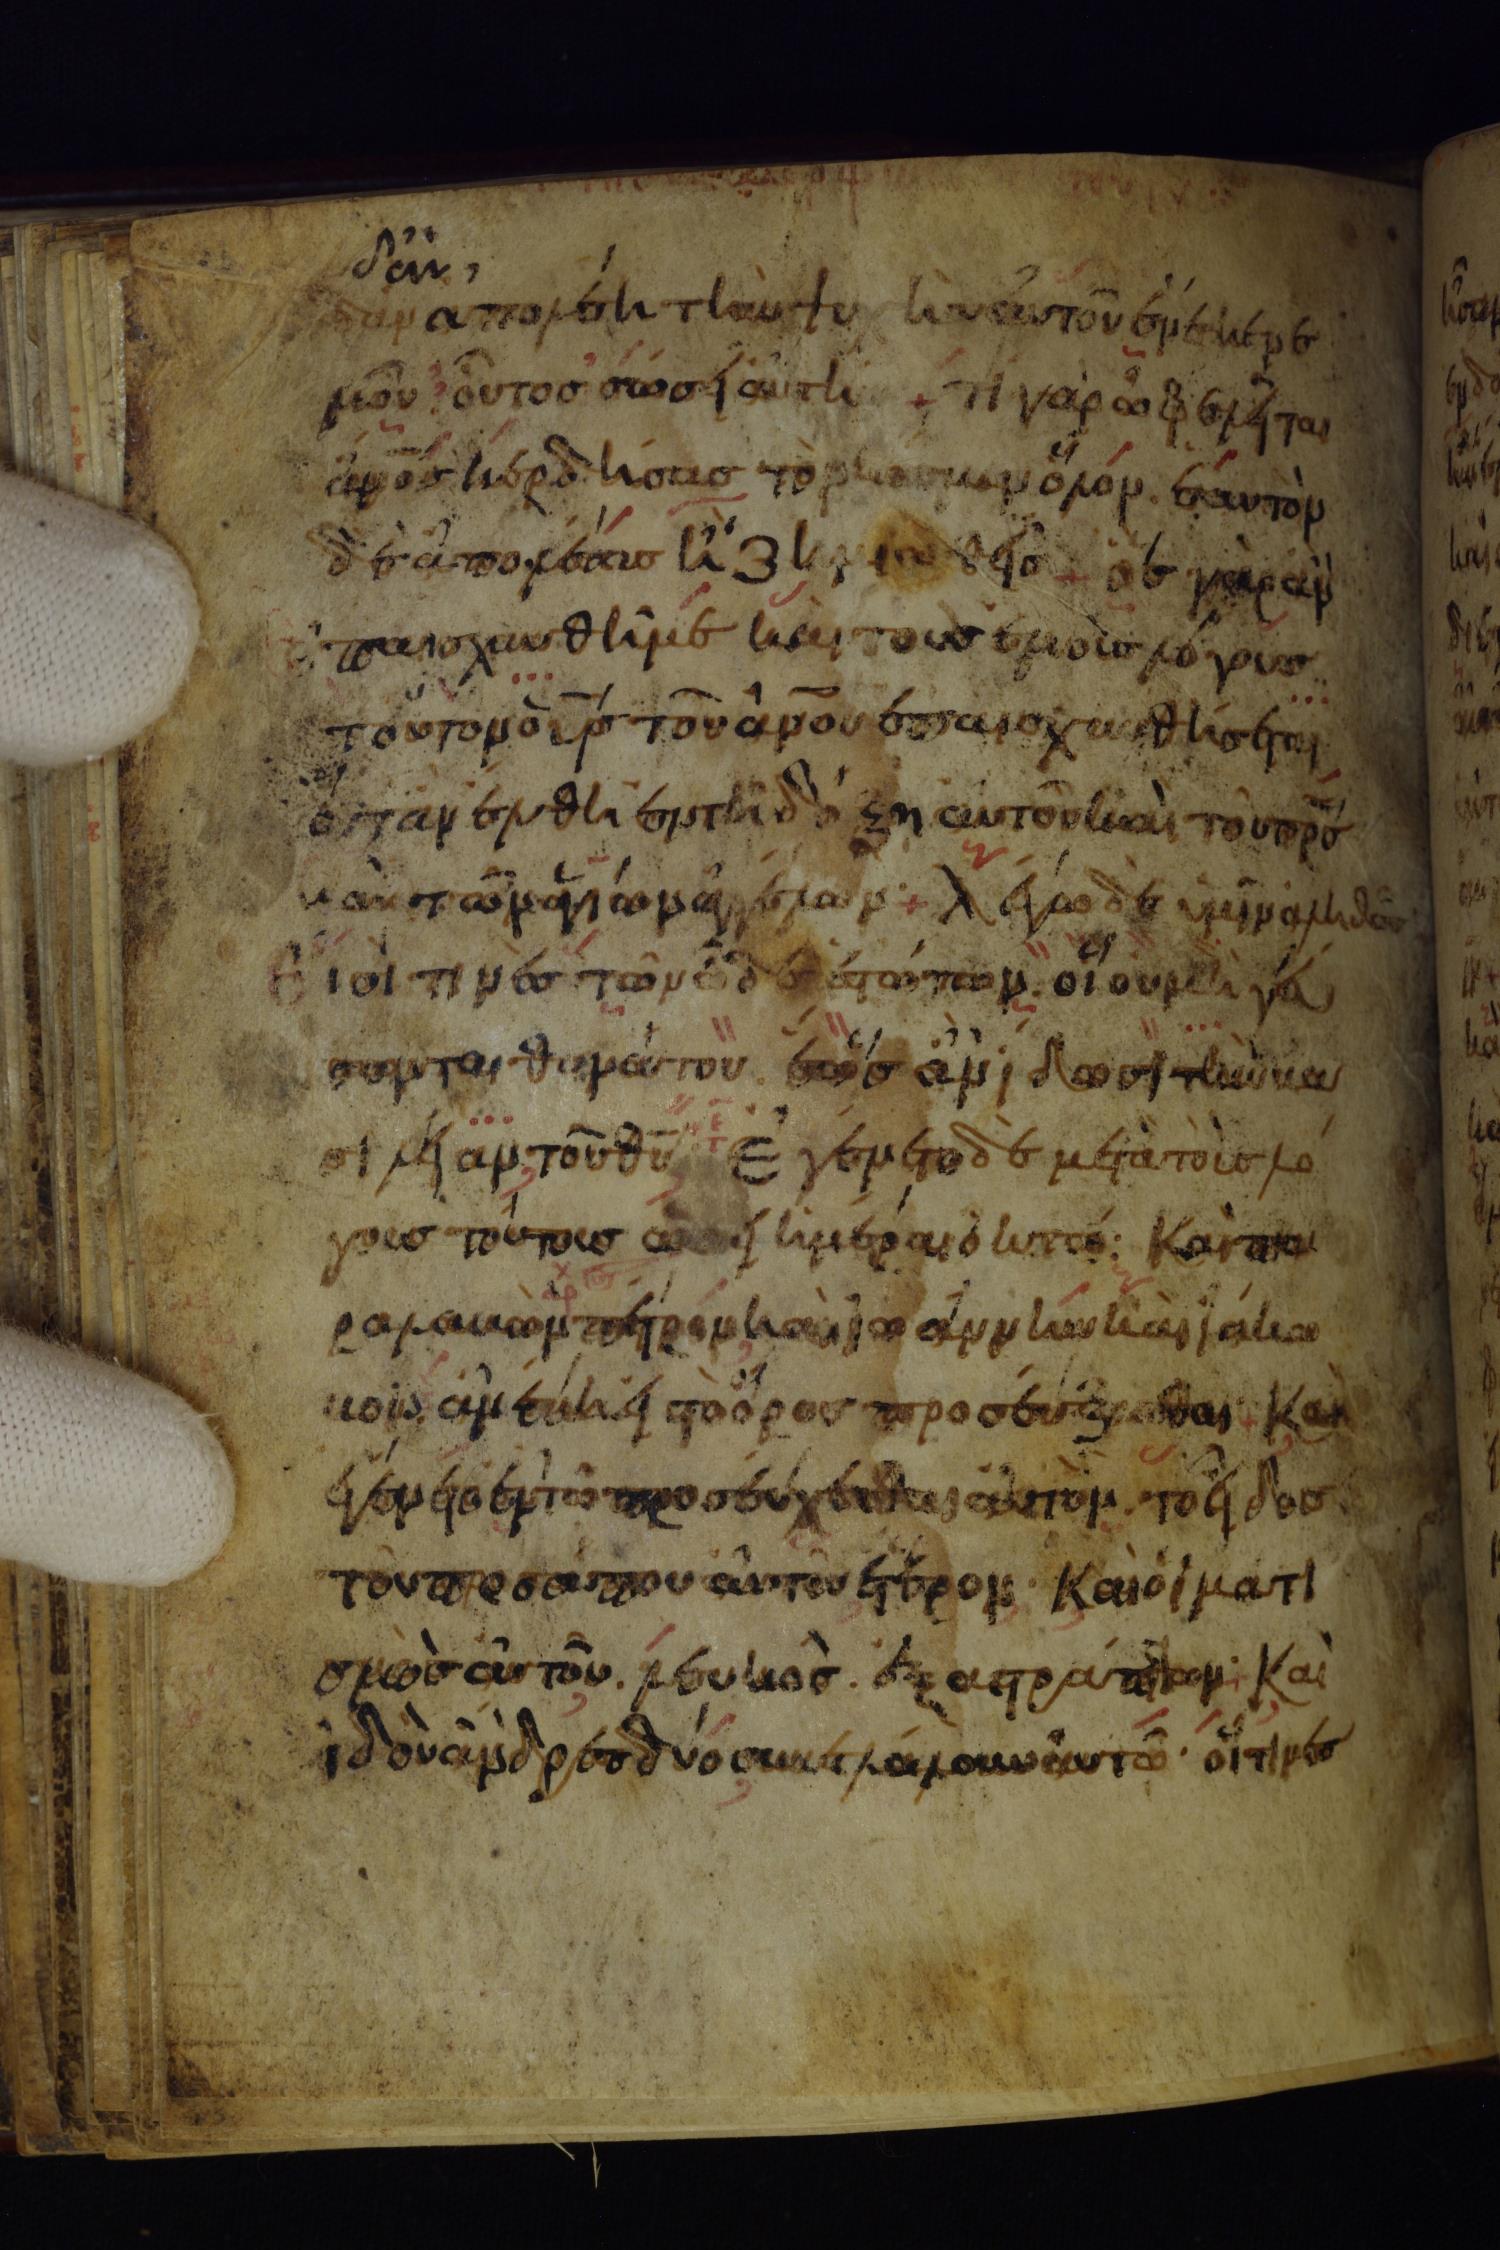 δ' ἂν
δαν ἀπολέση τὴν ψυχὴν αὐτοῦ ἕνεκεν ἐ
μοῦ οὗτος σώσει αὐτή + Τί γὰρ ὠφελεῖται
ἄνος κερδήσας τὸν κόσμον ὅλον. ἑαυτὸν
δὲ ἀπολέσας ἢ ζημιωθείς + ὃς γὰρ ἂν
ἐπαισχυνθῆ με καὶ τοὺς ἐμοὺς λόγους
τοῦτον ὁ υἱὸς τοῦ ἀνου ἐπαισχυνθήσεται
ὅταν ἔλθη ἐν τῆ δόξη αὐτοῦ καὶ τοῦ πρς
καὶ τῶν ἁγίων ἀγγέλων + λέγω δὲ ὑμῖν ἀληθῶς
Εἰσί τινες τῶν ὧδε ἑστώτων. οἳ οὐ μὴ γεύ
σονται θανάτου. ἕως ἂν ἴδωσι τὴν βα
σιλείαν τοῦ θυ Ἐγένετο δὲ μετὰ τοὺς λό
γους τούτους ὡσεὶ ἡμέραι ὀκτώ· Καὶ πα
ραλαβὼν πέτρον καὶ ἰωάννην καὶ ἰάκω
βον. ἀνέβη εἰς τὸ ὄρος προσεύξασθαι + Καὶ
ἐγένετο ἐν τῶ προσεύχεσθαι αὐτὸν. τὸ εἶδος
τοῦ προσώπου αὐτοῦ ἕτερον· Καὶ ὁ ἱματι
σμὸς αὐτοῦ. λευκὸς. ἐξαστράπτων· Καὶ
ἰδοὺ ἄνδρες δύο συνελάλουν αὐτῶ· οἵτινες